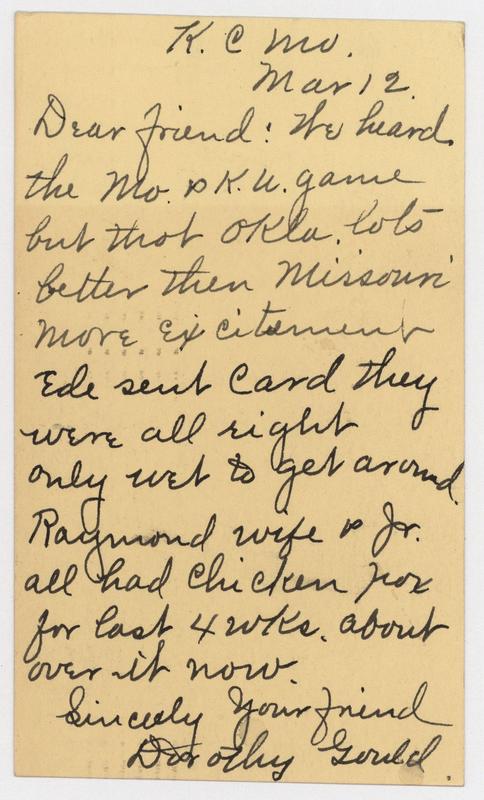 K. C Mo.
Mar 12.
Dear friend: We heard
the Mo. & K. U. game
but thot Okla. lots
better then Missouri
more excitement
Ede sent Card they
were all right
only wet to get around.
Raymond wife & Jr.
all had Chicken pox
for last 4 wks. about
over it now.
Sincely Your friend
Dorothy Gould.